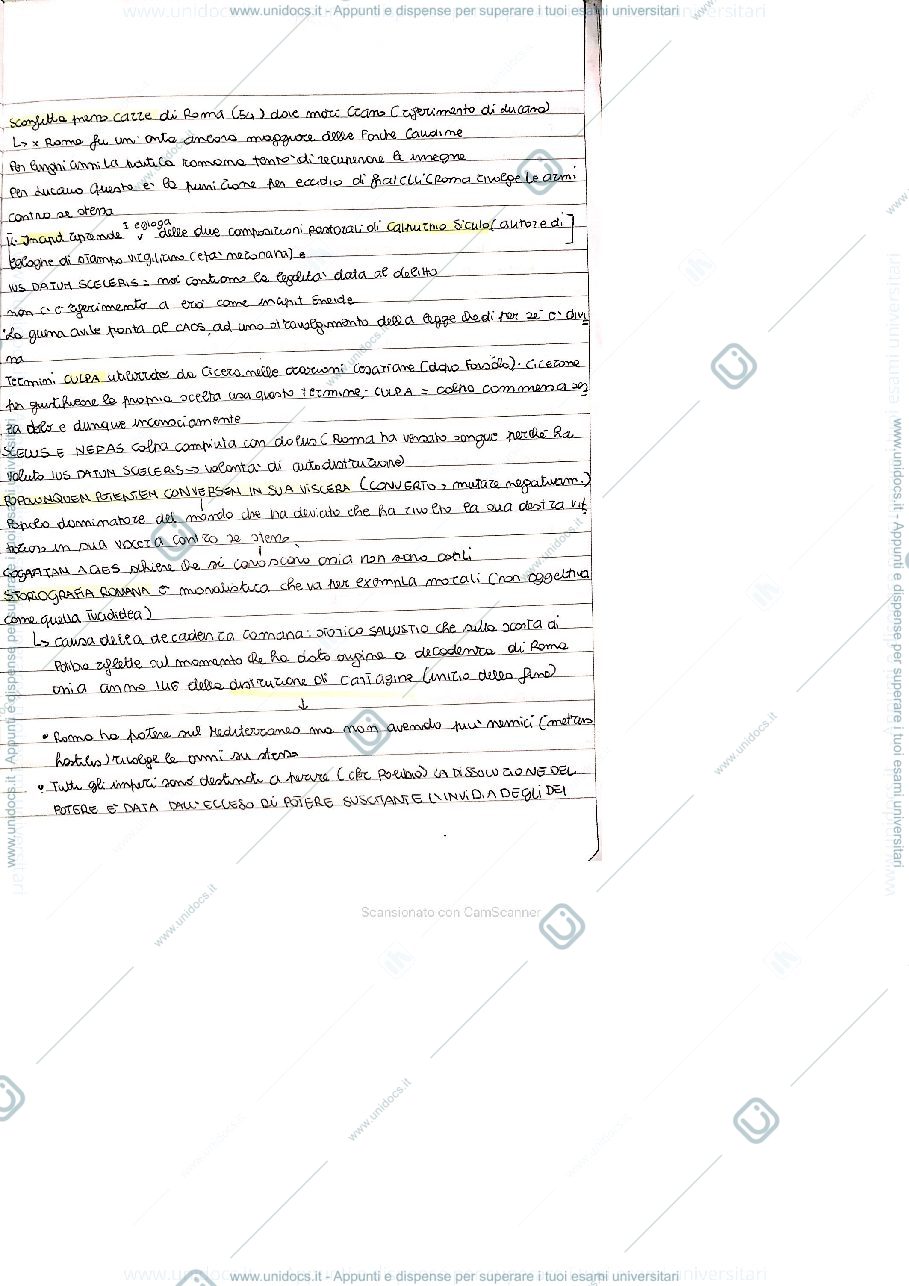 www.unidocs.it - Appunti e dispense per superare i tuoi esami universitari
sconfitta presso Carre di Roma (54) dove morì Crasso (riferimento di Lucano)
↳ x Roma fu un' onta ancora maggiore delle Forche Caudine
Per lunghi anni la politica romana tentò di recuperare le insegne
Per Lucano questo è la punizione per eccidio di fratelli (Roma rivolge le armi
contro se stessa
I egloga
L' Incipit riprende delle due composizioni pastorali di Calpurnio Siculo (autore di
bologne di stampo virgiliano (età neroniana)
IUS DATUM SCELERIS = noi contiamo la legalità data al delitto
non c'è riferimento a eroi come incipit Eneide
La guerra civile porta al CAOS, ad uno stravolgimento della legge che di per sé è divi
na
Termini CULPA utilizzato da Cicero nelle orazioni Cesariane (dopo Farsalo). Cicerone
per giustificare la propria scelta usa questo termine. CULPA = colpa commessa sen
za dolo e dunque inconsciamente
SCELUS E NEFAS colpa compiuta con dolus (Roma ha versato sangue perché ha
voluto IUS DATUM SCELERIS → volontà di autodistruzione)
POPULUNQUEN POTENTEM CONVERSEN IN SUA VISCERA (CONVERTO, mutare negativam.)
Popolo dominatore del mondo che ha deviato che ha rivolto la sua destra vit
toriosa in sua viscera contro se stesso
COGNATAM ACIES schiere che si conoscono ossia non sono ostili
STORIOGRAFIA ROMANA è moralistica che va per exempla morali (non oggettiva
come quella Tucididea)
↳ causa della decadenza romana: storico SALLUSTIO che sulla scorta di
Polibio riflette sul momento che ha dato origine a decadenza di Roma
ossia anno 146 della distruzione di Cartagine (inizio della fine)
↓
• Roma ha potere sul Mediterraneo ma non avendo più nemici (metus
hostilis) rivolge le armi su stessa
• Tutti gli imperi sono destinati a perire (cfr Polibio) LA DISSOLUZIONE DEL
POTERE È DATA DALL' ECCESSO DI POTERE SUSCITANTE L'INVIDIA DEGLI DEI
Scansionato con CamScanner
www.unidocs.it - Appunti e dispense per superare i tuoi esami universitari